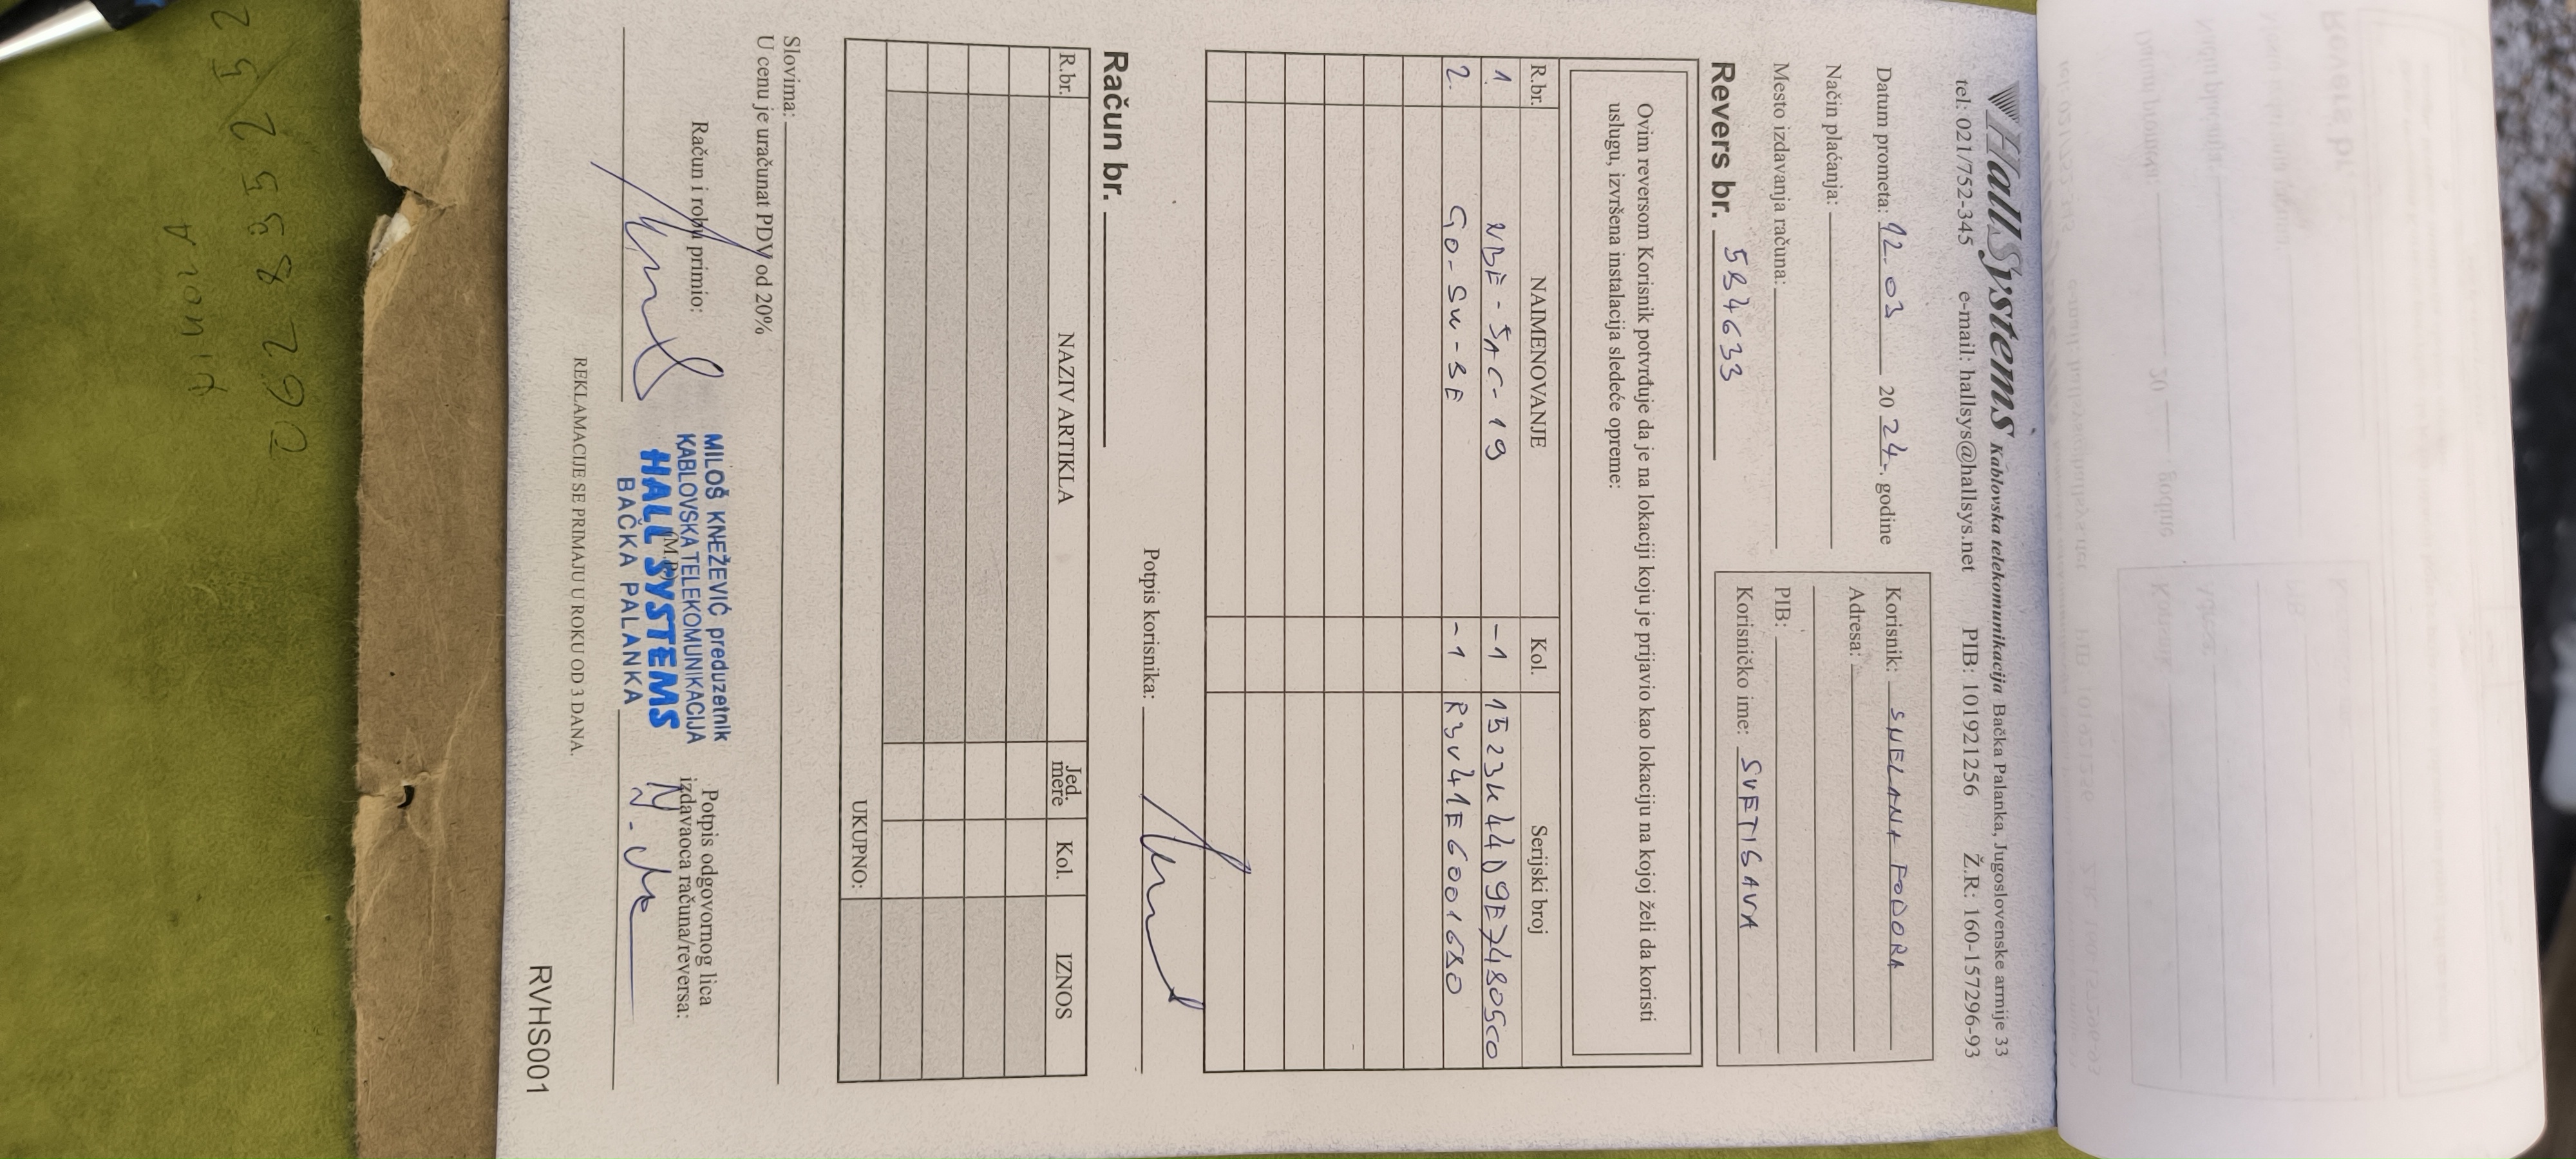 HallSystems Kablovska telekomunikacija Bačka Palanka, Jugoslovenske armije 33
tel: 021/752-345 e-mail: hallsys@hallsys.net PIB: 101921256 Ž.R: 160-157296-93
Datum prometa: 12.03 2024. godine
Način plaćanja:
Mesto izdavanja računa:
Korisnik: SNELANA FODORA
Adresa:
PIB:
Korisničko ime: SVETISAVA
Revers br. 5834633
Ovim reversom Korisnik potvrđuje da je na lokaciji koju je prijavio kao lokaciju na kojoj želi da koristi
uslugu, izvršena instalacija sledeće opreme:
R.br. NAIMENOVANJE Kol. Serijski broj
1 NBE-5AC-19 -1 1523K44D9E74805C0
2. GO-SW-BE -1 R3V41E6001680
Potpis korisnika:
Račun br.
R.br. NAZIV ARTIKLA Jed. mere Kol. IZNOS
UKUPNO:
Slovima:
U cenu je uračunat PDV od 20%
Račun i robu primio:
MILOŠ KNEŽEVIĆ preduzetnik
KABLOVSKA TELEKOMUNIKACIJA
(M.P.)
HALL SYSTEMS
BAČKA PALANKA
Potpis odgovornog lica
izdavaoca računa/reversa:
REKLAMACIJE SE PRIMAJU U ROKU OD 3 DANA.
RVHS001